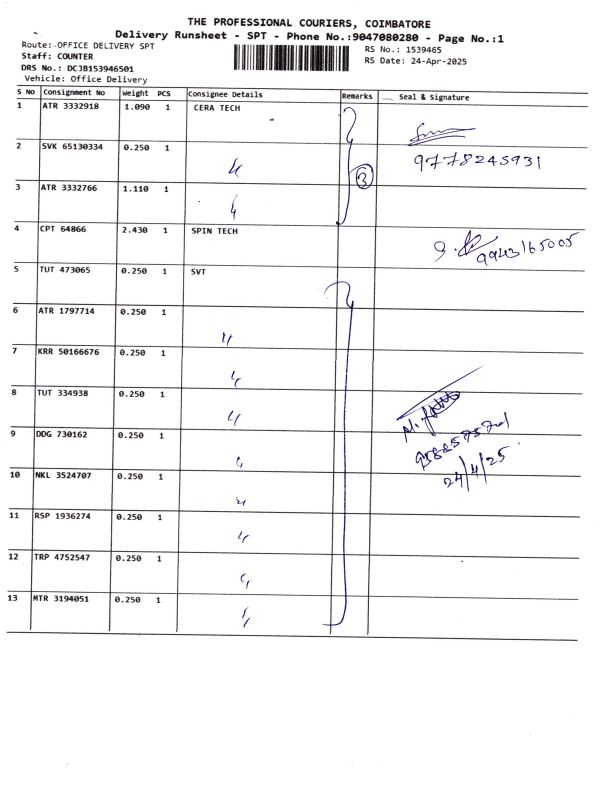 THE PROFESSIONAL COURIERS, COIMBATORE
Delivery Runsheet - SPT - Phone No.:9047080280 - Page No.:1
Route:-OFFICE DELIVERY SPT RS No.: 1539465
Staff: COUNTER RS Date: 24-Apr-2025
DRS No.: DCJB153946501
Vehicle: Office Delivery
S No Consignment No Weight PCS Consignee Details Remarks Seal & Signature
1 ATR 3332918 1.090 1 CERA TECH
2 SVK 65130334 0.250 1 〃 9778245931
3 ATR 3332766 1.110 1 〃 3
4 CPT 64866 2.430 1 SPIN TECH 9943165005
5 TUT 473065 0.250 1 SVT
6 ATR 1797714 0.250 1 〃
7 KRR 50166676 0.250 1 〃
8 TUT 334938 0.250 1 〃
9 DDG 730162 0.250 1 〃
10 NKL 3524707 0.250 1 〃 24/4/25
11 RSP 1936274 0.250 1 〃
12 TRP 4752547 0.250 1 〃
13 MTR 3194051 0.250 1 〃